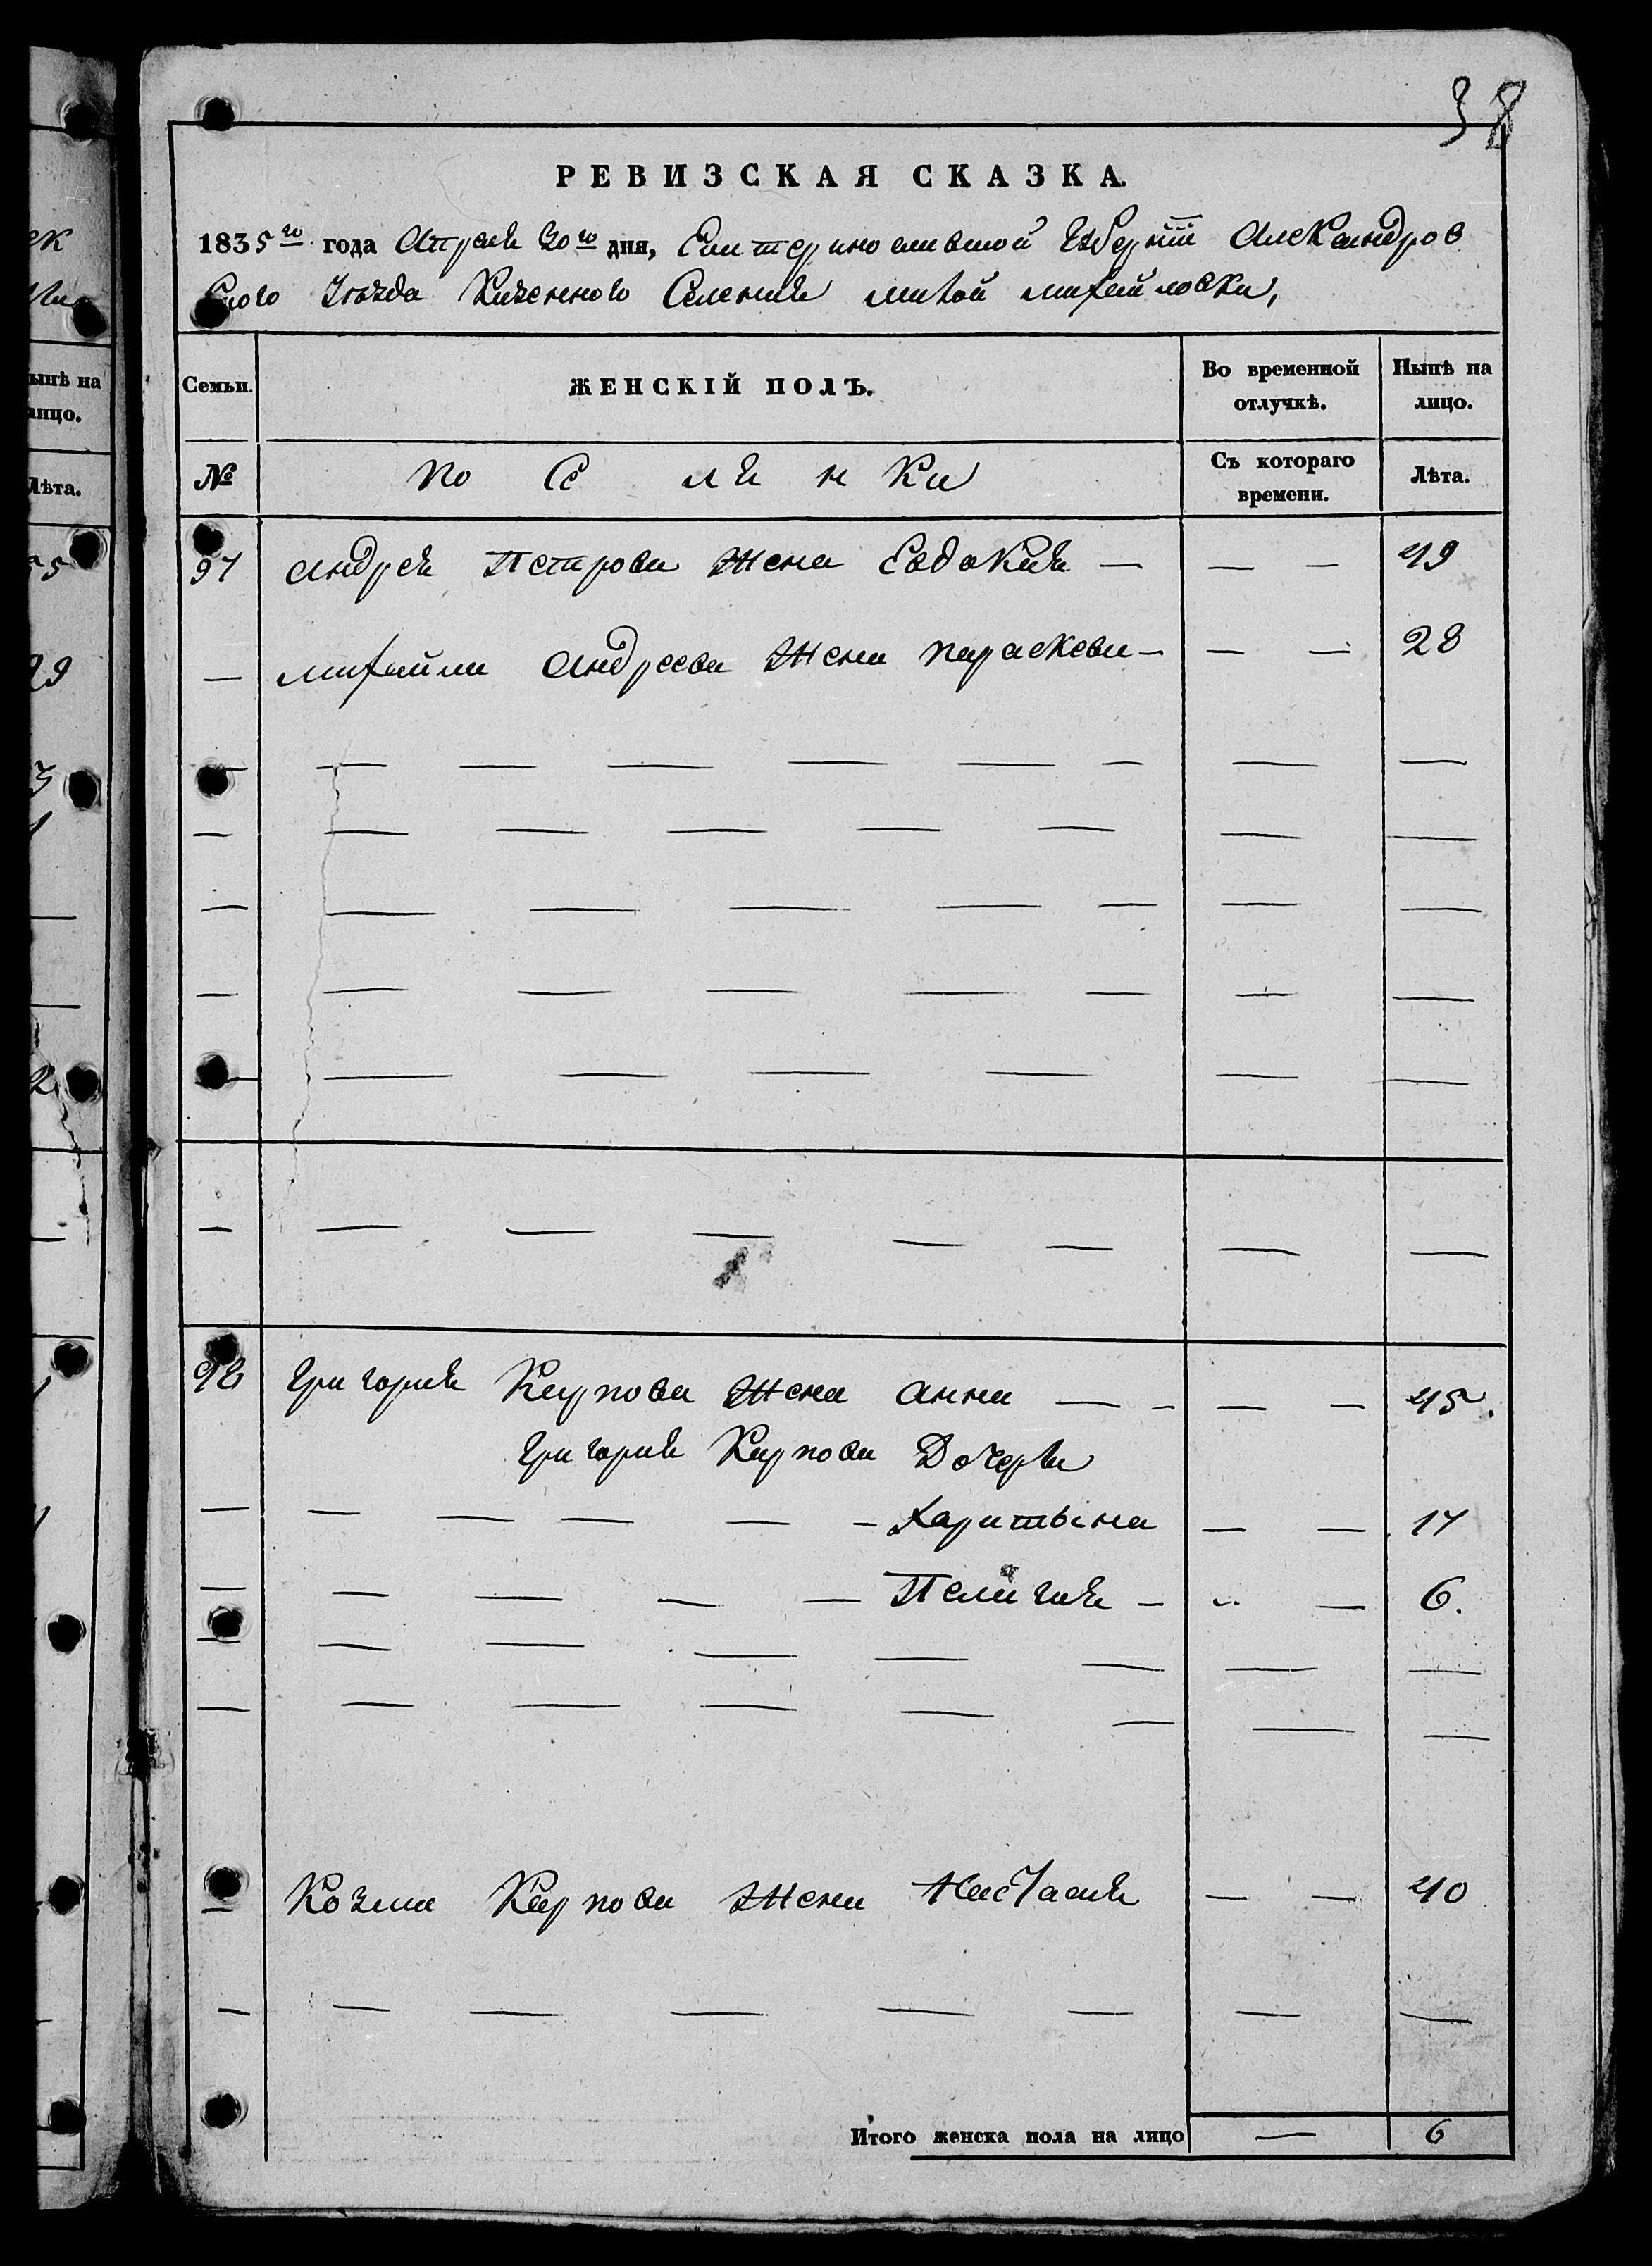 38
РЕВИЗСКАЯ СКАЗКА.
1835го года Апреля 30го дня, Екатеринославской Губернии Александров
ского Уѣзда Казенного Селения Малой Михайловки,
Семьи. ЖЕНСКІЙ ПОЛЪ. Во временной отлучкѣ. Нынѣ на лицо.
№ Поселянки Съ котораго времени. Лѣта.
97 Андрея Петрова Жена Евдокия — — — 49
— Михайла Андреева Жена Параскева — — — 28
98 Григория Карпова Жена Анна — — — — 45.
Григория Карпова Дочери
— — — — — — Харитына — — 17
— — — — — Пелагия — — — 6.
— Козмы Карпова Жена Настасия — — 40
Итого женска пола на лицо — 6
ынѣ на
лицо.
Лѣта.